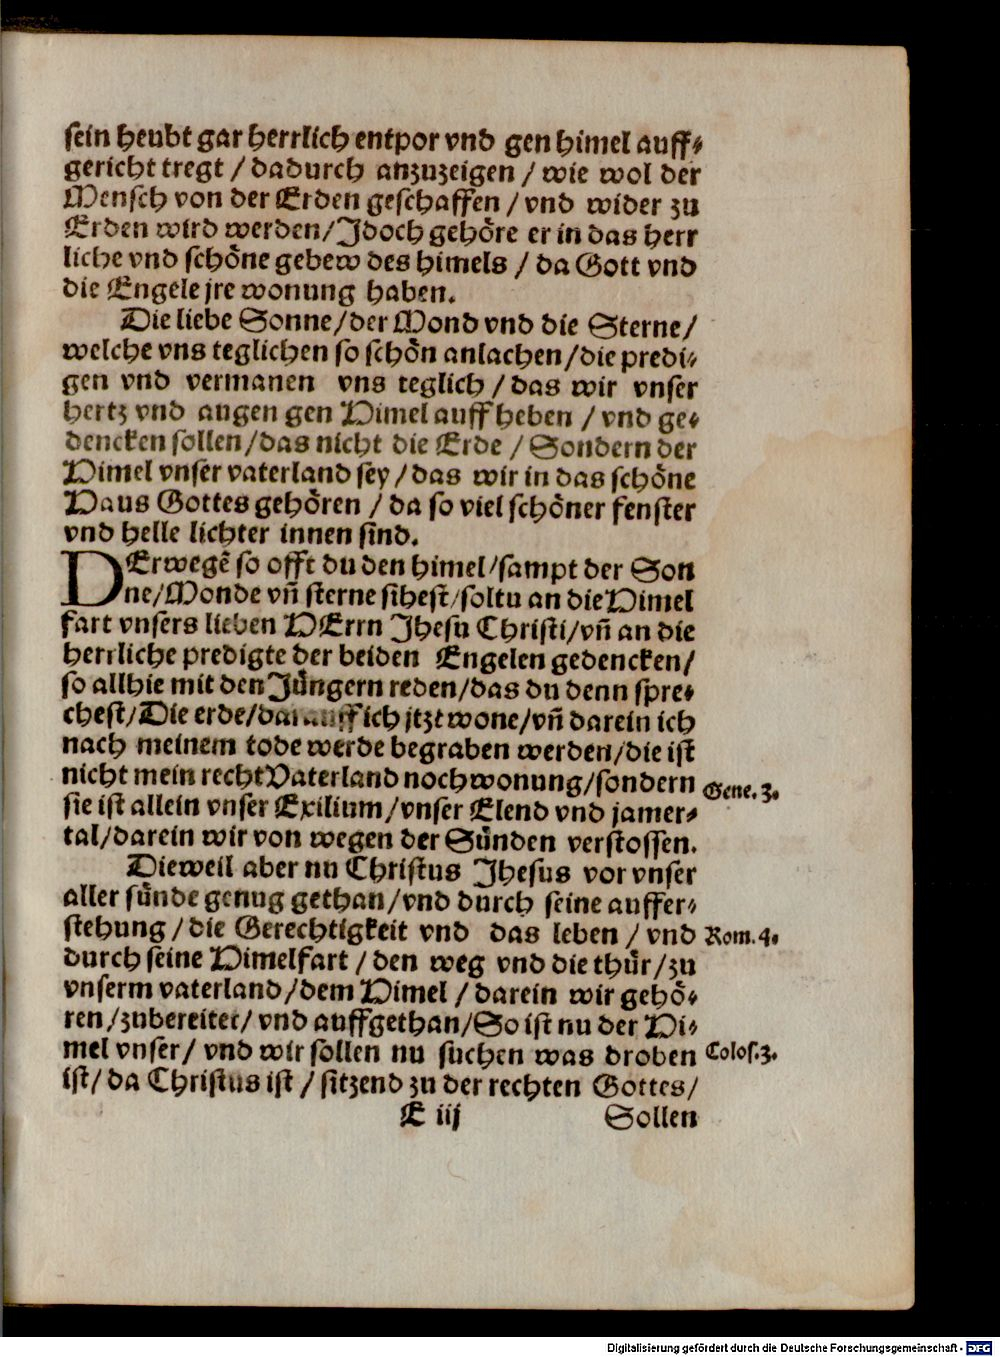 sein heubt gar herrlich entpor vnd gen himel auff⸗
gericht tregt / dadurch anzuzeigen / wie wol der
Mensch von der Erden geschaffen / vnd wider zu
Erden wird werden/ Jdoch gehöre er in das herr
liche vnd schöne gebew des himels / da Gott vnd
die Engele jre wonung haben.
Die liebe Sonne/der Mond vnd die Sterne/
welche vns teglichen so schön anlachen/die predi⸗
gen vnd vermanen vns teglich / das wir vnser
hertz vnd augen gen Himel auff heben / vnd ge⸗
dencken sollen/das nicht die Erde / Sondern der
Himel vnser vaterland sey / das wir in das schöne
Haus Gottes gehören / da so viel schöner fenster
vnd helle lichter innen sind.
DErwegē so offt du den himel/sampt der Son
ne/Monde vn̄ sterne sihest/soltu an die Himel
fart vnsers lieben HErrn Jhesu Christi/vn̄ an die
herrliche predigte der beiden Engelen gedencken/
so allhie mit den Jüngern reden/das du denn spre⸗
chest/Die erde/darauff ich jtzt wone/vn̄ darein ich
nach meinem tode werde begraben werden/die ist
nicht mein recht Vaterland noch wonung/sondern
sie ist allein vnser Exilium/vnser Elend vnd jamer⸗
tal/darein wir von wegen der Sünden verstossen.
Gene. 3.
Dieweil aber nu Christus Jhesus vor vnser
aller sünde genug gethan/vnd durch seine auffer⸗
stehung / die Gerechtigkeit vnd das leben / vnd
Rom. 4.
durch seine Himelfart / den weg vnd die thür/zu
vnserm vaterland/dem Himel / darein wir gehö⸗
ren/zubereitet/ vnd auffgethan/So ist nu der Hi⸗
mel vnser/ vnd wir sollen nu suchen was droben
Colos. 3.
ist/ da Christus ist / sitzend zu der rechten Gottes/
E iij
Sollen
Digitalisierung gefördert durch die Deutsche Forschungsgemeinschaft - DFG